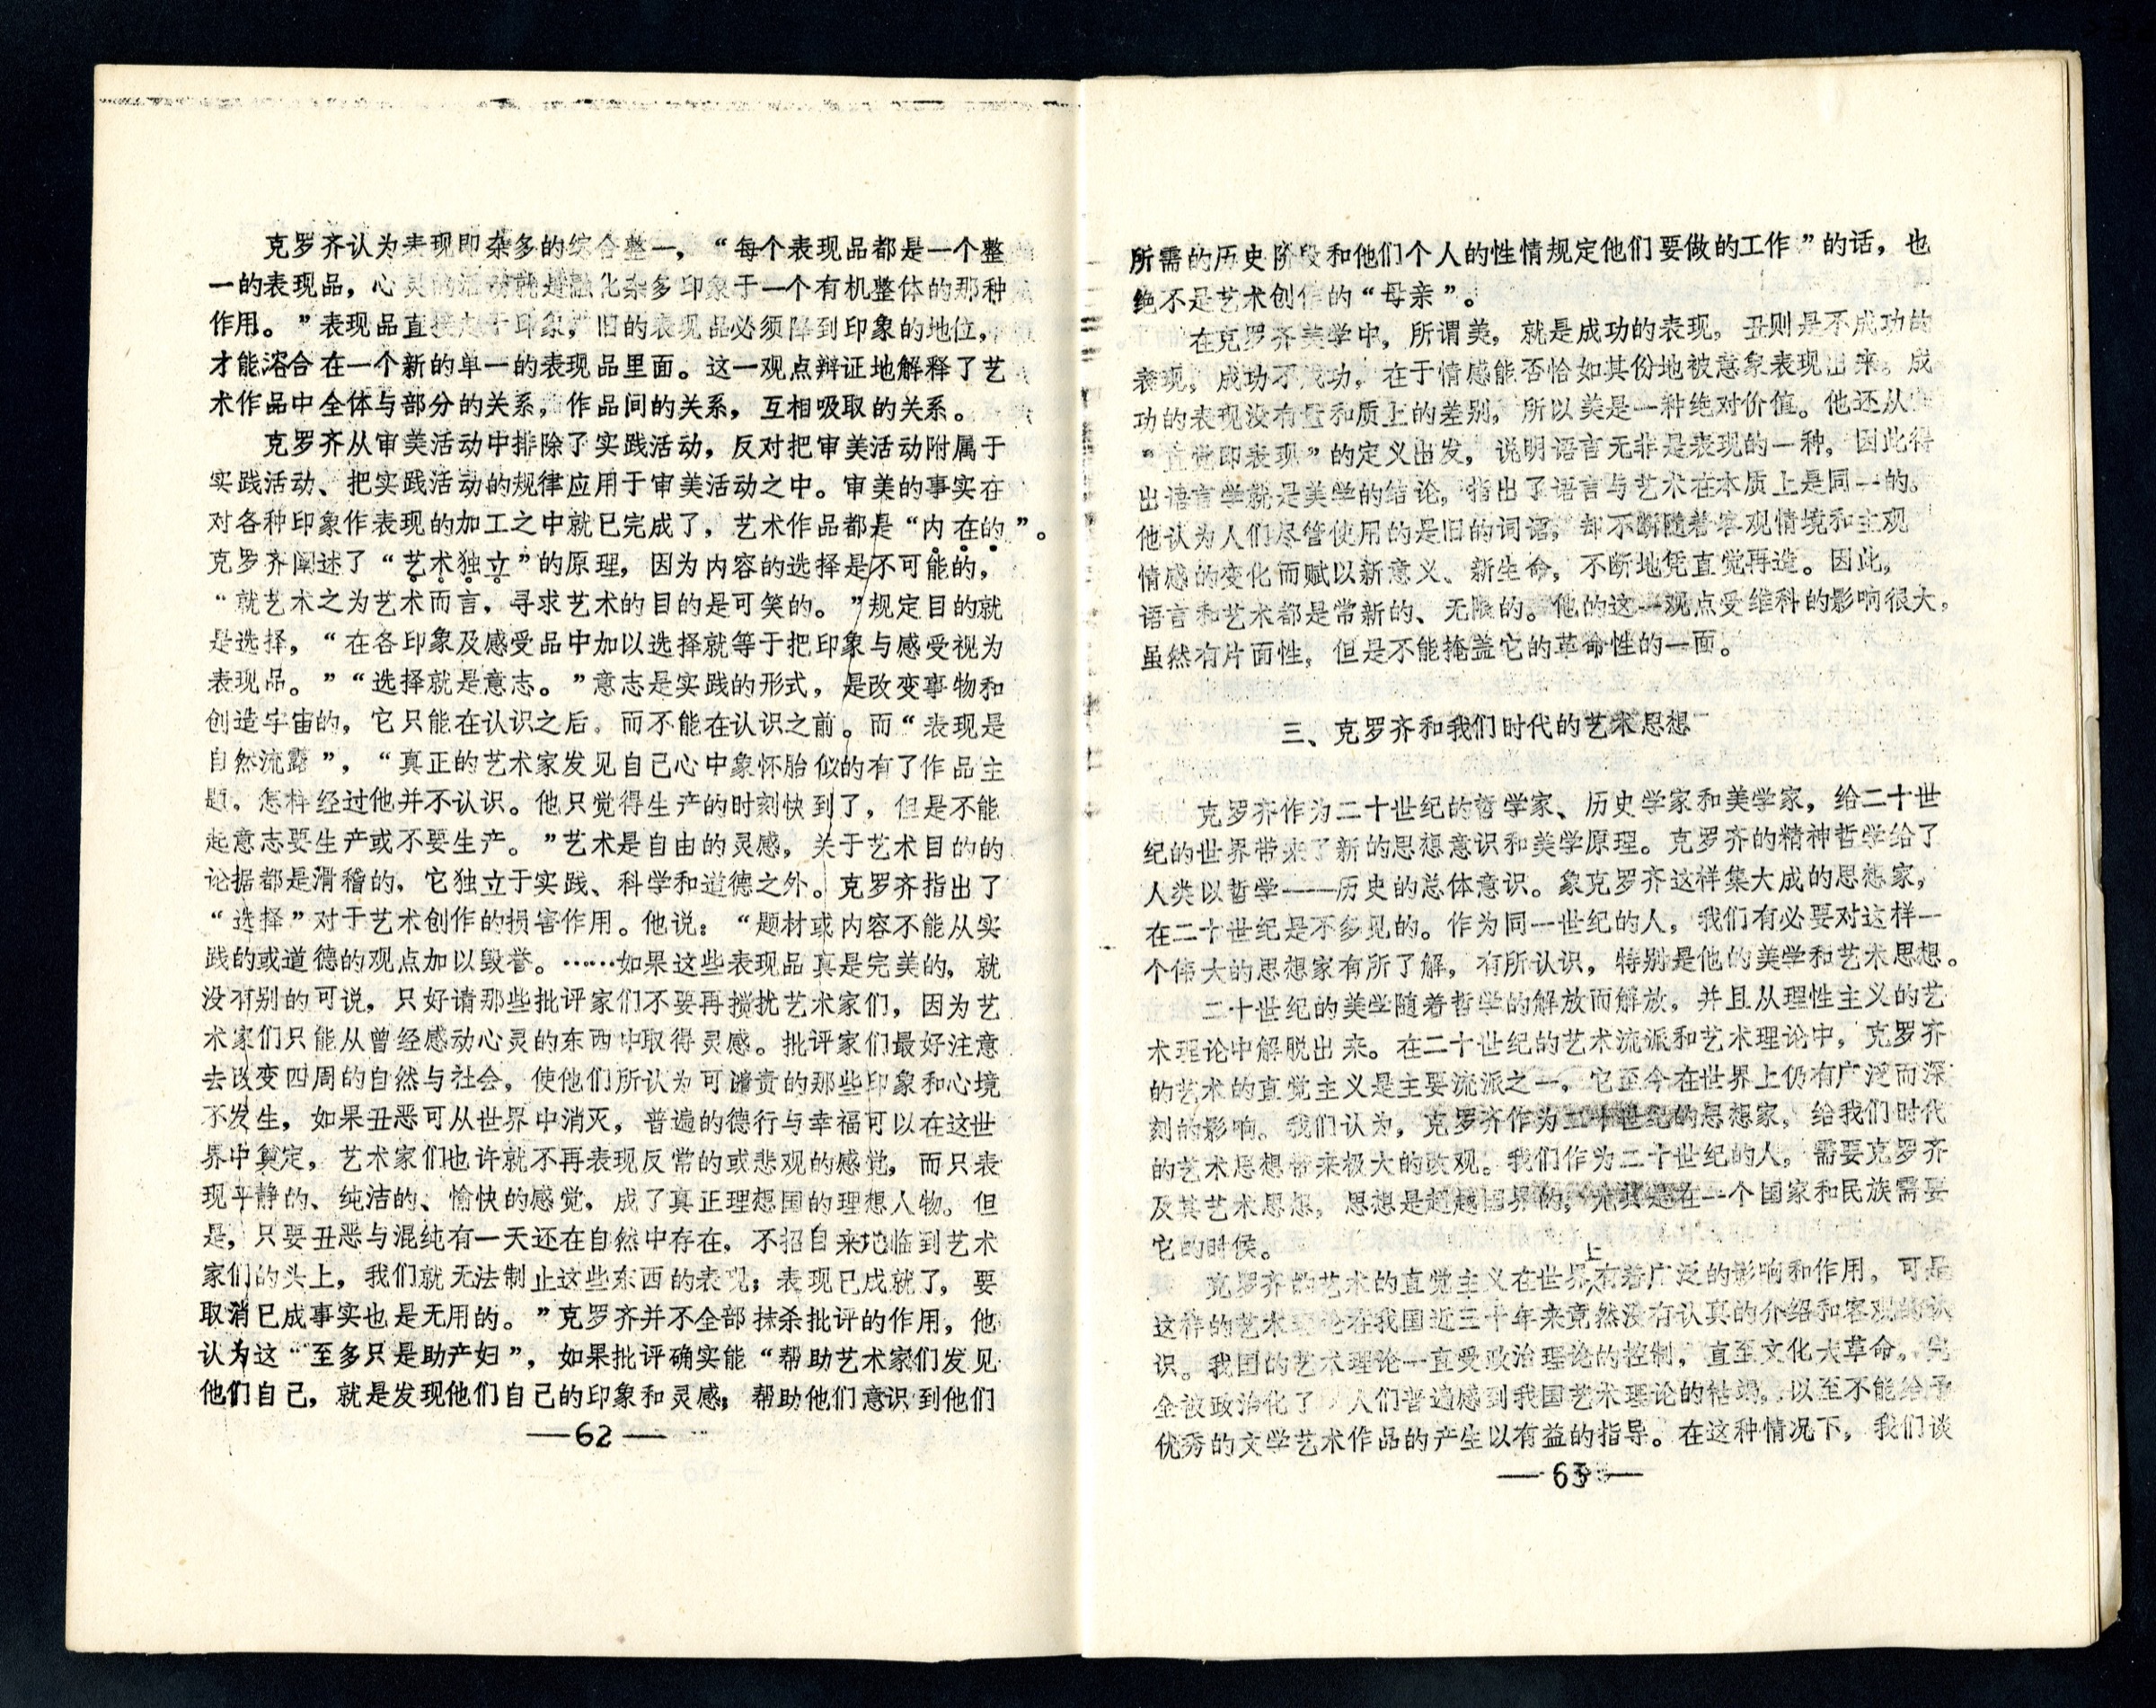 克罗齐认为表现即杂多的综合整一，“每个表现品都是一个整
一的表现品，心灵的活动就是融化杂多印象于一个有机整体的那种
作用。”表现品直接起于印象，旧的表现品必须降到印象的地位，
才能溶合在一个新的单一的表现品里面。这一观点辩证地解释了艺
术作品中全体与部分的关系，作品间的关系，互相吸取的关系。
克罗齐从审美活动中排除了实践活动，反对把审美活动附属于
实践活动、把实践活动的规律应用于审美活动之中。审美的事实在
对各种印象作表现的加工之中就已完成了，艺术作品都是“内在的”。
克罗齐阐述了“艺术独立”的原理，因为内容的选择是不可能的，
“就艺术之为艺术而言，寻求艺术的目的是可笑的。”规定目的就
是选择，“在各印象及感受品中加以选择就等于把印象与感受视为
表现品。”“选择就是意志。”意志是实践的形式，是改变事物和
创造宇宙的，它只能在认识之后。而不能在认识之前。而“表现是
自然流露”，“真正的艺术家发见自己心中象怀胎似的有了作品主
题。怎样经过他并不认识。他只觉得生产的时刻快到了，但是不能
起意志要生产或不要生产。”艺术是自由的灵感，关于艺术目的的
论据都是滑稽的，它独立于实践、科学和道德之外。克罗齐指出了
“选择”对于艺术创作的损害作用。他说：“题材或内容不能从实
践的或道德的观点加以毁誉。……如果这些表现品真是完美的，就
没有别的可说，只好请那些批评家们不要再搅扰艺术家们，因为艺
术家们只能从曾经感动心灵的东西中取得灵感。批评家们最好注意
去改变四周的自然与社会，使他们所认为可谴责的那些印象和心境
不发生，如果丑恶可从世界中消灭，普遍的德行与幸福可以在这世
界中奠定，艺术家们也许就不再表现反常的或悲观的感觉，而只表
现平静的、纯洁的、愉快的感觉，成了真正理想国的理想人物。但
是，只要丑恶与混纯有一天还在自然中存在，不招自来地临到艺术
家们的头上，我们就无法制止这些东西的表现；表现已成就了，要
取消已成事实也是无用的。”克罗齐并不全部抹杀批评的作用，他
认为这“至多只是助产妇”，如果批评确实能“帮助艺术家们发见
他们自己，就是发现他们自己的印象和灵感；帮助他们意识到他们
—62—
所需的历史阶段和他们个人的性情规定他们要做的工作”的话，也
绝不是艺术创作的“母亲”。
在克罗齐美学中，所谓美，就是成功的表现，丑则是不成功的
表现，成功不成功，在于情感能否恰如其份地被意象表现出来。成
功的表现没有量和质上的差别，所以美是一种绝对价值。他还从
“直觉即表现”的定义出发，说明语言无非是表现的一种，因此得
出语言学就是美学的结论，指出了语言与艺术在本质上是同一的。
他认为人们尽管使用的是旧的词语，却不断随着客观情境和主观
情感的变化而赋以新意义、新生命，不断地凭直觉再造。因此，
语言和艺术都是常新的、无限的。他的这一观点受维科的影响很大。
虽然有片面性，但是不能掩盖它的革命性的一面。
三、克罗齐和我们时代的艺术思想
克罗齐作为二十世纪的哲学家、历史学家和美学家，给二十世
纪的世界带来了新的思想意识和美学原理。克罗齐的精神哲学给了
人类以哲学——历史的总体意识。象克罗齐这样集大成的思想家，
在二十世纪是不多见的。作为同一世纪的人，我们有必要对这样一
个伟大的思想家有所了解，有所认识，特别是他的美学和艺术思想。
二十世纪的美学随着哲学的解放而解放，并且从理性主义的艺
术理论中解脱出来。在二十世纪的艺术流派和艺术理论中，克罗齐
的艺术的直觉主义是主要流派之一，它至今在世界上仍有广泛而深
刻的影响。我们认为，克罗齐作为二十世纪的思想家，给我们时代
的艺术思想带来极大的改观。我们作为二十世纪的人，需要克罗齐
及其艺术思想，思想是超越国界的，尤其是在一个国家和民族需要
它的时候。
克罗齐的艺术的直觉主义在世界上有着广泛的影响和作用，可是
这样的艺术理论在我国近三十年来竟然没有认真的介绍和客观的认
识。我国的艺术理论一直受政治理论的控制，直至文化大革命，完
全被政治化了，人们普遍感到我国艺术理论的枯竭，以至不能给予
优秀的文学艺术作品的产生以有益的指导。在这种情况下，我们谈
—63—